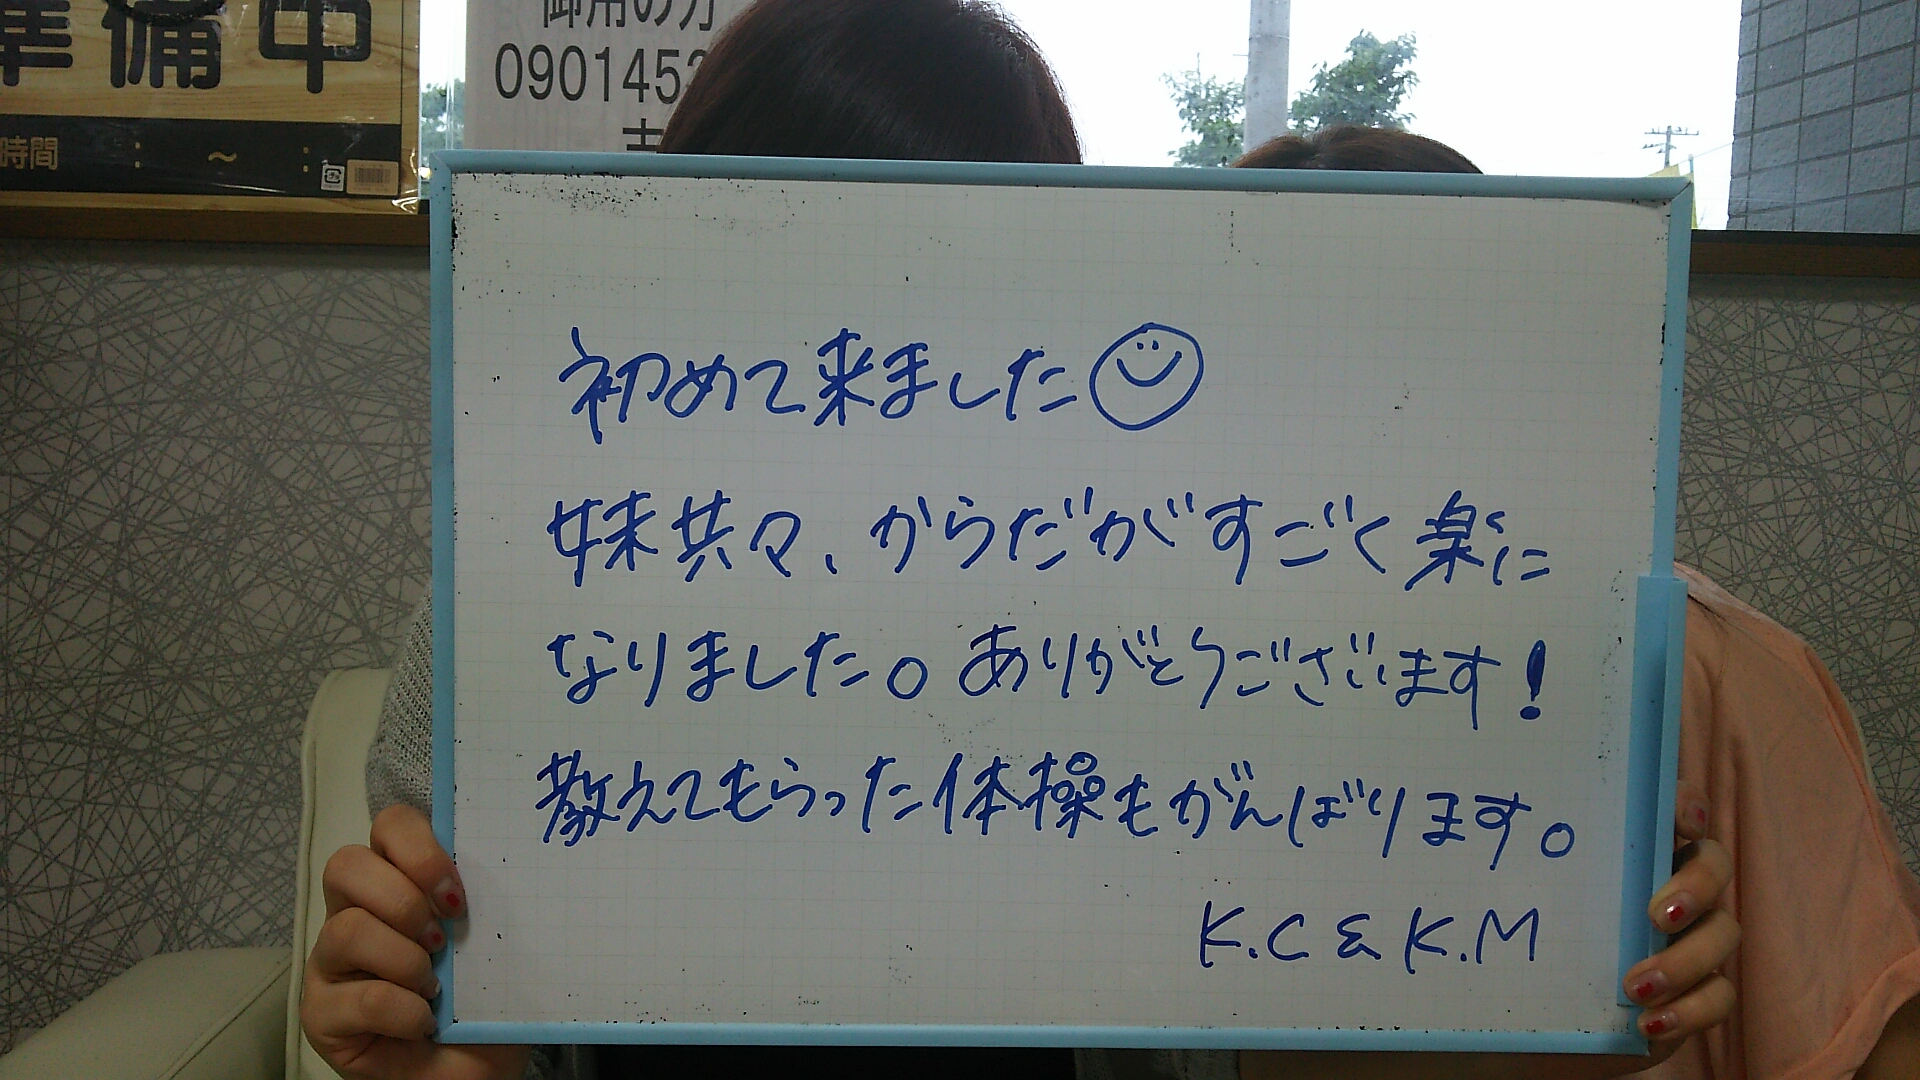 準備中
時間 : ～ :
御用の方
0901453
初めて来ました
妹共々、からだがすごく楽に
なりました。ありがとうございます!
教えてもらった体操もがんばります。
K.C & K.M